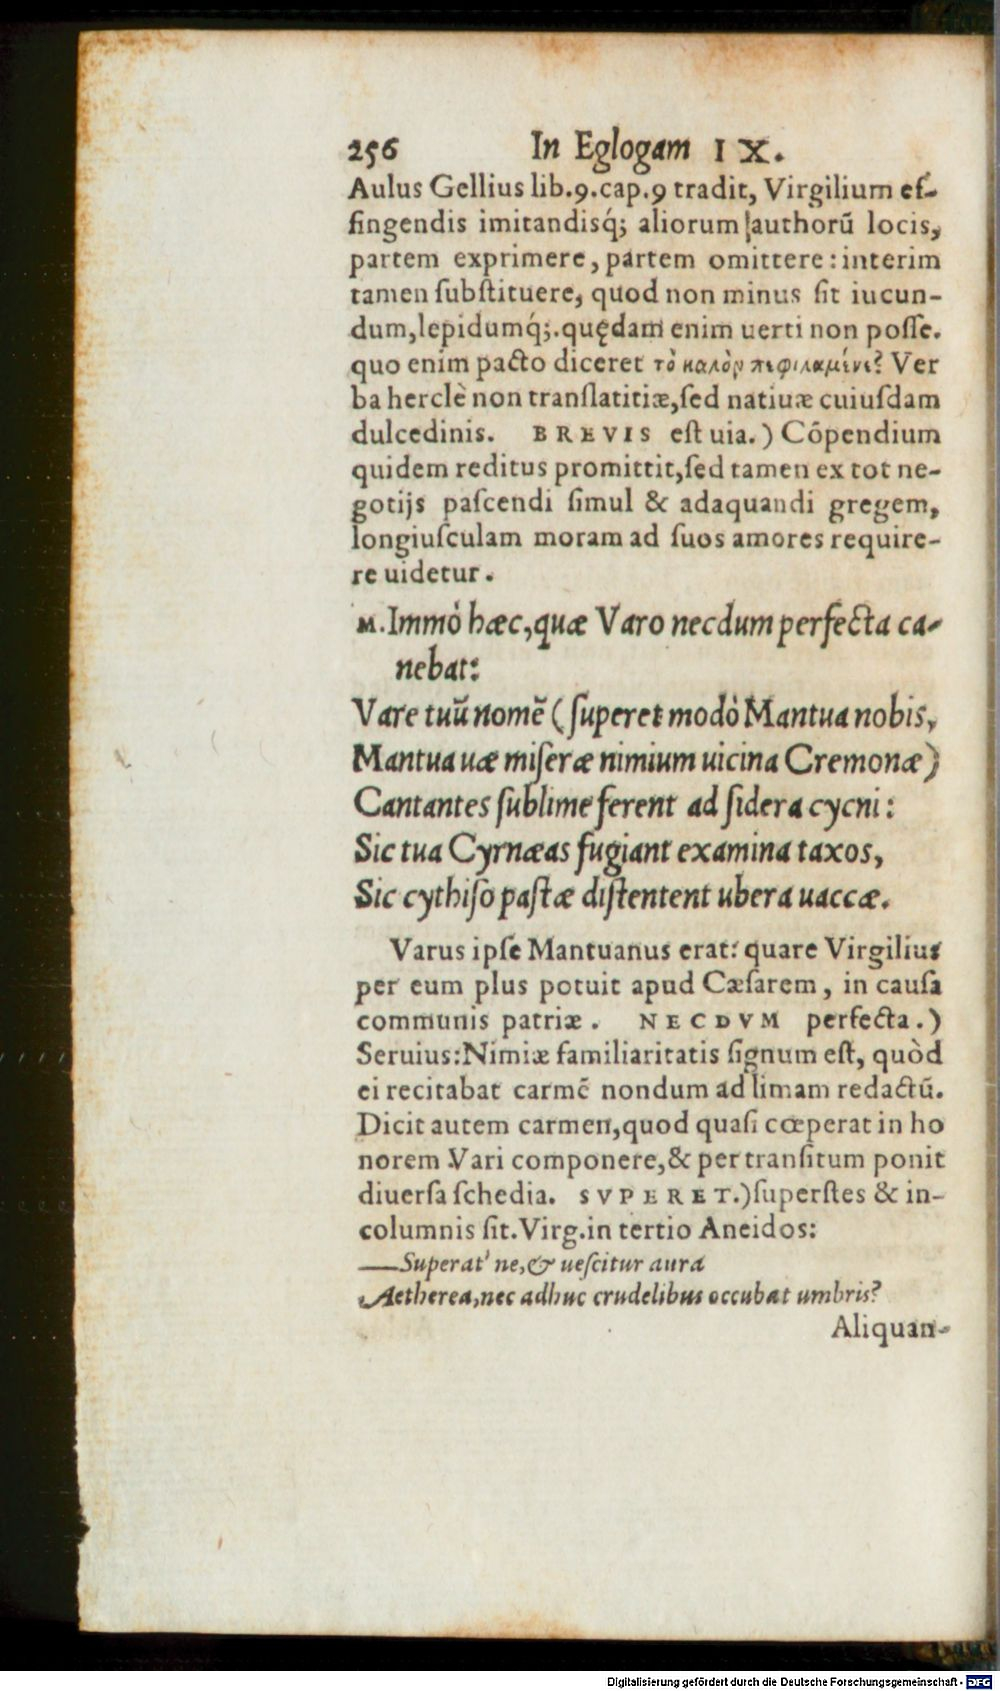 256 In Eglogam IX.
Aulus Gellius lib.9.cap.9 tradit, Virgilium ef-
fingendis imitandisq́; aliorum authorũ locis,
partem exprimere, partem omittere: interim
tamen ſubſtituere, quod non minus ſit iucun-
dum, lepidumq́;. quędam enim uerti non poſſe.
quo enim pacto diceret τὸ καλὸν πεφιλαμένε? Ver
ba herclè non tranſlatitiæ, ſed natiuæ cuiuſdam
dulcedinis. BREVIS eſt uia.) Cõpendium
quidem reditus promittit, ſed tamen ex tot ne-
gotijs paſcendi ſimul & adaquandi gregem,
longiuſculam moram ad ſuos amores require-
re uidetur.
M. Immò hæc, quæ Varo necdum perfecta ca-
nebat:
Vare tuũ nomẽ (ſuperet modò Mantua nobis,
Mantua uæ miſeræ nimium uicina Cremonæ)
Cantantes ſublime ferent ad ſidera cycni:
Sic tua Cyrnæas fugiant examina taxos,
Sic cythiſo paſtæ diſtentent ubera uaccæ.
Varus ipſe Mantuanus erat: quare Virgilius
per eum plus potuit apud Cæſarem, in cauſa
communis patriæ. NECDVM perfecta.)
Seruius: Nimiæ familiaritatis ſignum eſt, quòd
ei recitabat carmẽ nondum ad limam redactũ.
Dicit autem carmen, quod quaſi cœperat in ho
norem Vari componere, & per tranſitum ponit
diuerſa ſchedia. SVPERET.) ſuperſtes & in-
columnis ſit. Virg. in tertio Aneidos:
—Superat' ne, & ueſcitur aura
Aetherea, nec adhuc crudelibus occubat umbris?
Aliquan-
Digitalisierung gefördert durch die Deutsche Forschungsgemeinschaft - DFG